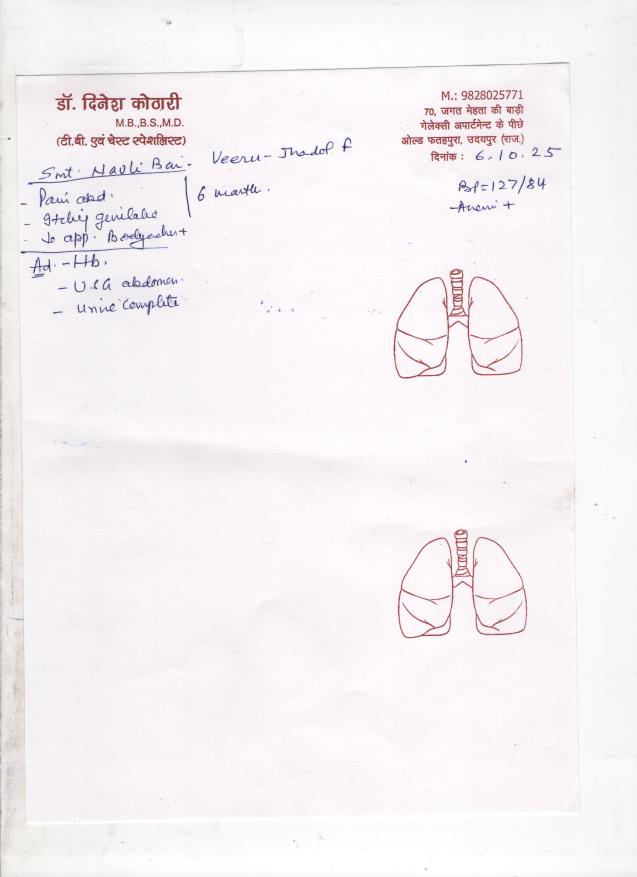 डॉ. दिनेश कोठारी
M.B.,B.S.,M.D.
(टी.बी. एवं चेस्ट स्पेशलिस्ट)
M.: 9828025771
70, जगत मेहता की बाड़ी
गेलेक्सी अपार्टमेन्ट के पीछे
ओल्ड फतहपुरा, उदयपुर (राज.)
दिनांक : 6.10.25
Smt. Navli Bai - Veeru - Jhadol F
- Pain abd.
- Itching
6 month.
app. Bodyache +
BP = 127/84
+
Ad. - Hb.
- USG abdomen.
- Urine Complete